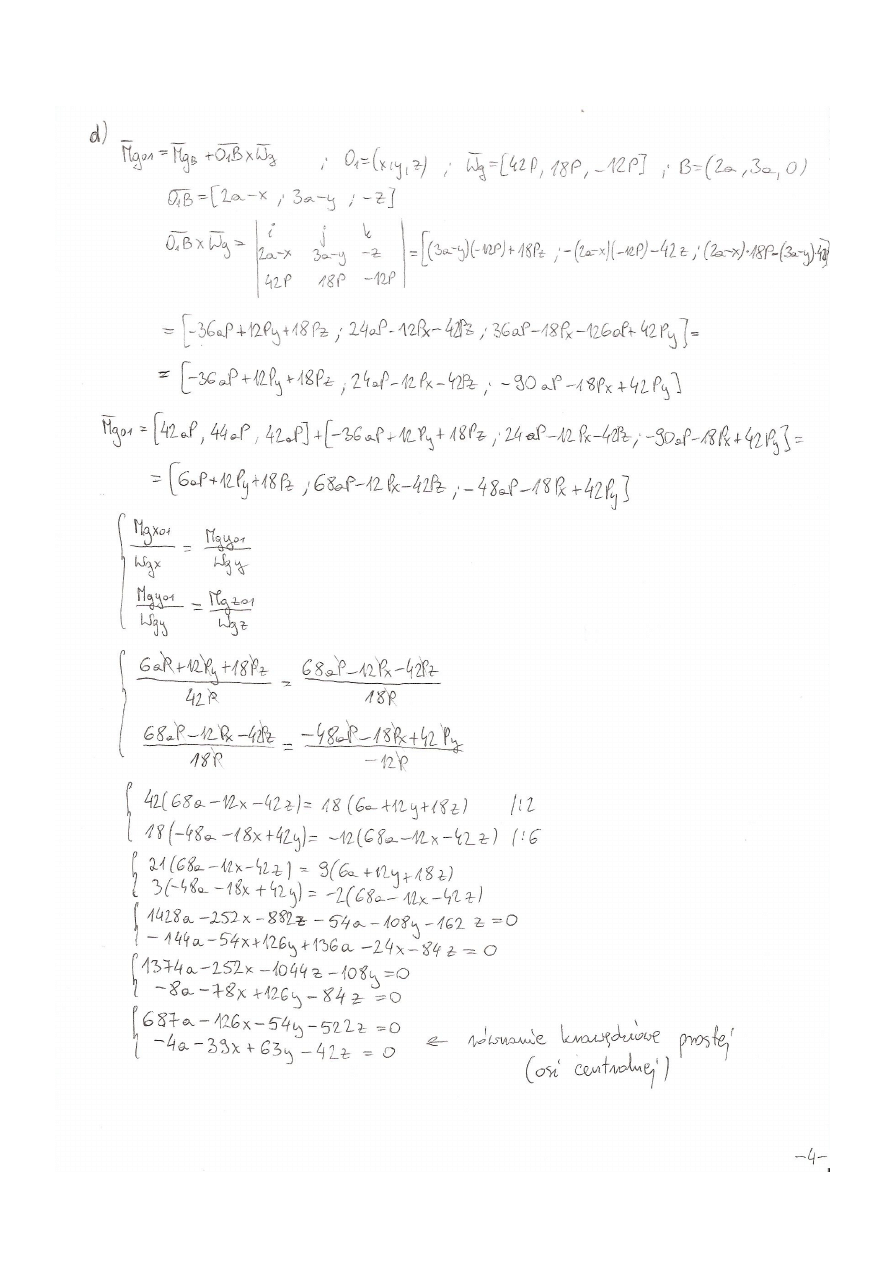 d)
M̄g01 = M̄gB + O̅₁B̅ × W̄g ; O₁=(x,y,z) ; W̄g=[42P, 18P, -12P] ; B=(2a, 3a, 0)
O̅₁B̅ = [2a-x ; 3a-y ; -z]
O̅₁B̅ × W̄g = | i j k | = [(3a-y)(-12P)+18Pz ; -(2a-x)(-12P)-42z ; (2a-x)·18P-(3a-y)42]
2a-x 3a-y -z
42P 18P -12P
= [-36aP+12Py+18Pz ; 24aP-12Px-42Pz ; 36aP-18Px-126aP+42Py] =
= [-36aP+12Py+18Pz ; 24aP-12Px-42Pz ; -90aP-18Px+42Py]
M̄g01 = [42aP, 44aP, 42aP]+[-36aP+12Py+18Pz ; 24aP-12Px-42Pz ; -90aP-18Px+42Py] =
= [6aP+12Py+18Pz ; 68aP-12Px-42Pz ; -48aP-18Px+42Py]
{ Mgx01 / Wgx = Mgy01 / Wgy
Mgy01 / Wgy = Mgz01 / Wgz
{ 6aP+12Py+18Pz / 42P = 68aP-12Px-42Pz / 18P
68aP-12Px-42Pz / 18P = -48aP-18Px+42Py / -12P
{ 42(68a-12x-42z) = 18(6a+12y+18z) /:2
18(-48a-18x+42y) = -12(68a-12x-42z) /:6
{ 21(68a-12x-42z) = 9(6a+12y+18z)
3(-48a-18x+42y) = -2(68a-12x-42z)
{ 1428a-252x-882z-54a-108y-162z=0
-144a-54x+126y+136a-24x-84z=0
{ 1374a-252x-1044z-108y=0
-8a-78x+126y-84z=0
{ 687a-126x-54y-522z=0
-4a-39x+63y-42z=0 ← równanie krawędziowe prostej
(osi centralnej)
-4-